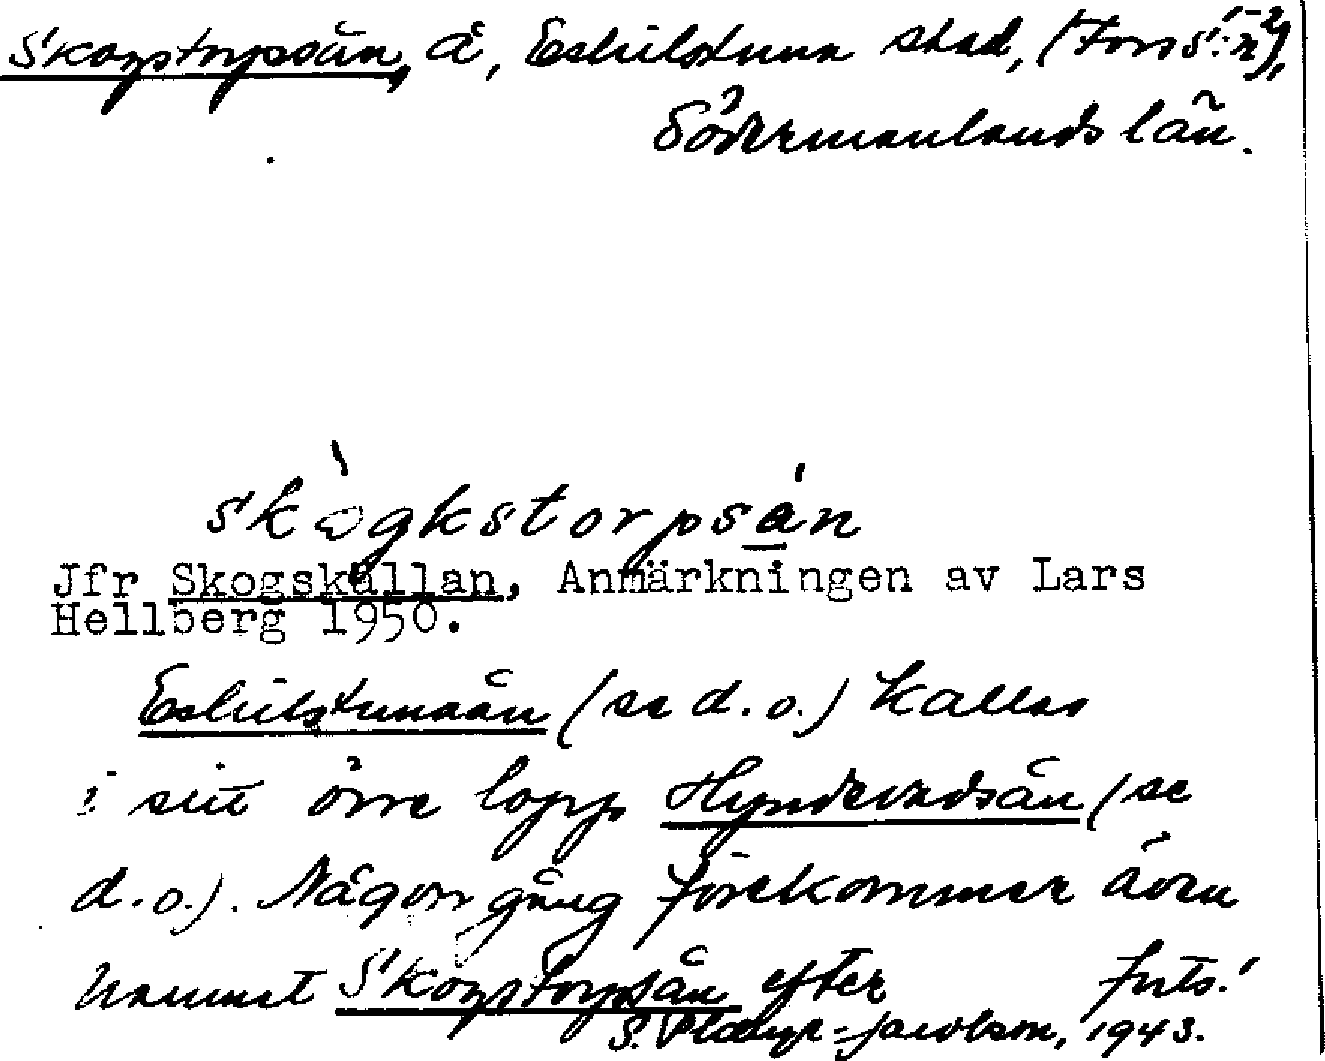 Skogstorpsån, å, Eskilstuna stad, (Fors s:n),
Södermanlands län.
skògkstorpsån
Jfr Skogskällan, Anmärkningen av Lars
Hellberg 1950.
Eskilstunaån (se d.o.) kallas
i sitt övre lopp Hyndevadsån (se
d.o.). Någon gång förekommer även
namnet Skogstorpsån efter forts.!
S. 1943.